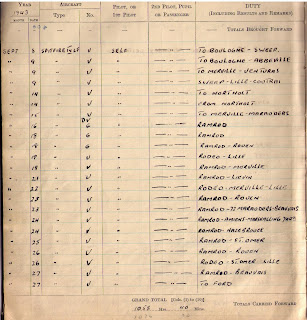 YEAR AIRCRAFT PILOT, OR 2ND PILOT, PUPIL DUTY
1943 1ST PILOT OR PASSENGER (INCLUDING RESULTS AND REMARKS)
MONTH DATE Type No.
TOTALS BROUGHT FORWARD
SEPT 8 SPITFIRE V SELF TO BOULOGNE - SWEEP.
" " V " TO BOULOGNE - ABBEVILLE
" " V " TO MERVILLE - VENTURAS
" " V " SWEEP - LILLE - COURTRAI
" " V " TO NORTHOLT
" " V " FROM NORTHOLT
" " V " TO MERVILLE - MARAUDERS
" 16 " " RAMROD
" " G " RAMROD
" 18 " G " RAMROD - ROUEN
" " V " RODEO - LILLE
" " V " RAMROD - MERVILLE
" " V " RAMROD - LIEVIN
" 22 " V " RODEO - MERVILLE - LILLE
" " V " RAMROD - ROUEN
" " V " RAMROD - 72 MARAUDERS - BEAUVAIS
" 24 " V " RAMROD - AMIENS MARSHALLING YARD
" 24 " V " RAMROD - HAZEBROUCK
" 25 " V " RAMROD - ST OMER
" 26 " V " RAMROD - ROUEN
" " V " RODEO - ST OMER - LILLE
" 27 " V " RAMROD - BEAUVAIS
" 27 " V " TO FORD
GRAND TOTAL [Cols. (1) to (10)]
Hrs. Mins. TOTALS CARRIED FORWARD